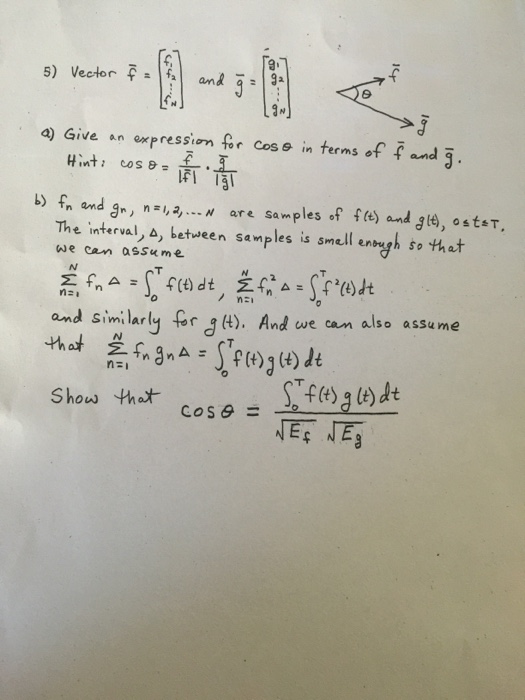 5) Vector f̄ = [f₁ f₂ ... f_N] and ḡ = [g₁ g₂ ... g_N] f̄ θ ḡ
a) Give an expression for cos θ in terms of f̄ and ḡ.
Hint: cos θ = f̄/|f̄| · ḡ/|ḡ|
b) fₙ and gₙ, n=1,2,... N are samples of f(t) and g(t), 0≤t≤T.
The interval, Δ, between samples is small enough so that
we can assume
∑_{n=1}^{N} fₙ Δ = ∫₀ᵀ f(t) dt, ∑_{n=1}^{N} fₙ² Δ = ∫₀ᵀ f²(t) dt
and similarly for g(t). And we can also assume
that ∑_{n=1}^{N} fₙ gₙ Δ = ∫₀ᵀ f(t) g(t) dt
Show that cos θ = ∫₀ᵀ f(t) g(t) dt / √E_f √E_g